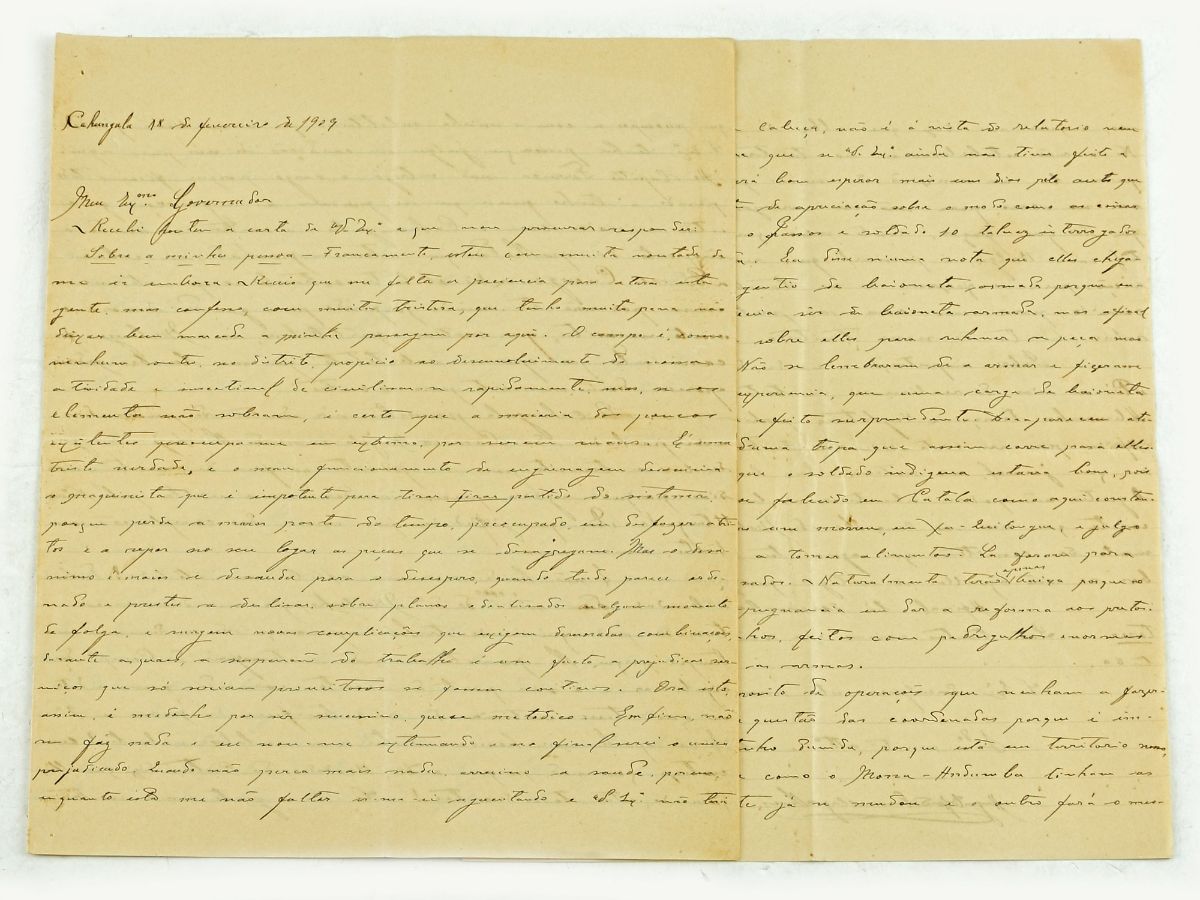 Cahungula 18 de fevereiro de 1909
Meu Exmo. Governador
Recebi hontem a carta de V. Exa. a que vou procurar responder:
Sobre a minha pessoa – Francamente, estou com muita vontade de
me ir embora. Receio que me falte a paciencia para aturar esta
gente, mas confesso, com muita tristeza, que tenho muita pena não
deixar bem marcada a minha passagem por aqui. O campo é, como
nenhum outro, no districto, propicio ao desenvolvimento da nossa
actividade e susceptivel de civilisar-se rapidamente, mas, se os
elementos não sobram, é certo que a maioria dos poucos
existentes preoccupa-me em extremo, por serem maus. É uma
triste verdade, e o mau funcionamento da engrenagem desnorteia
o maquinista que é impotente para tirar partido do material,
porque perde a maior parte do tempo, preocupado, em desfazer atri-
tos e a repor no seu logar as peças que se desagregam. Mas o desa-
nimo é maior e descamba para o desespero, quando tudo parece orde-
nado e prestes a deslisar, sobre planos idealisados n'algum momento
de folga, e surgem novas complicações que exigem demoradas combinações,
durante as quaes, a suspensão do trabalho é um facto, a prejudicar ser-
viços que só seriam proveitosos se fossem continuos. Ora isto,
assim, é medonho por ser successivo, quase metodico. Emfim, não
se faz nada e eu vou-me extenuando e no final serei o unico
prejudicado. Quando não perca mais nada, arruino a saude, porem,
enquanto esta me não faltar ir-me-ei aguentando e V. Exa. não terá
cabeça, não é á vista do relatorio nem
que se V. Exa. ainda não tiver feito a
será bom esperar mais uns dias pelo auto que
de apreciação sobre o modo como as coisas
o Passos e soldado 10 talvez interrogados
Eu disse n'uma nota que elles chega-
gentio de baioneta armada porque
ser de baioneta armada, mas
sobre elles, para rehaver a peça mas
Não se lembraram de a armar e fizeram
experiencia, que uma carga de baioneta
e efeito surprendente. Desaparecem até
d'uma tropa que assim corre para elles.
que o soldado indigena estaria bom, pois
falecido em Catala como aqui constou
um morreu, em Xa-Quilongue, e julgo
a tomar alimentos. La foram para
Naturalmente terão apenas baixa porque
repugnancia em dar a reforma aos pretos.
feitos com pedregulhos enormes
as armas.
proposito de operações que venham a fazer-
questão das coordenadas porque é im-
tenho duvida, porque está em territorio nosso,
como o Mossa-Andumba tinham as
te, já se mudou e o outro fará o mes-